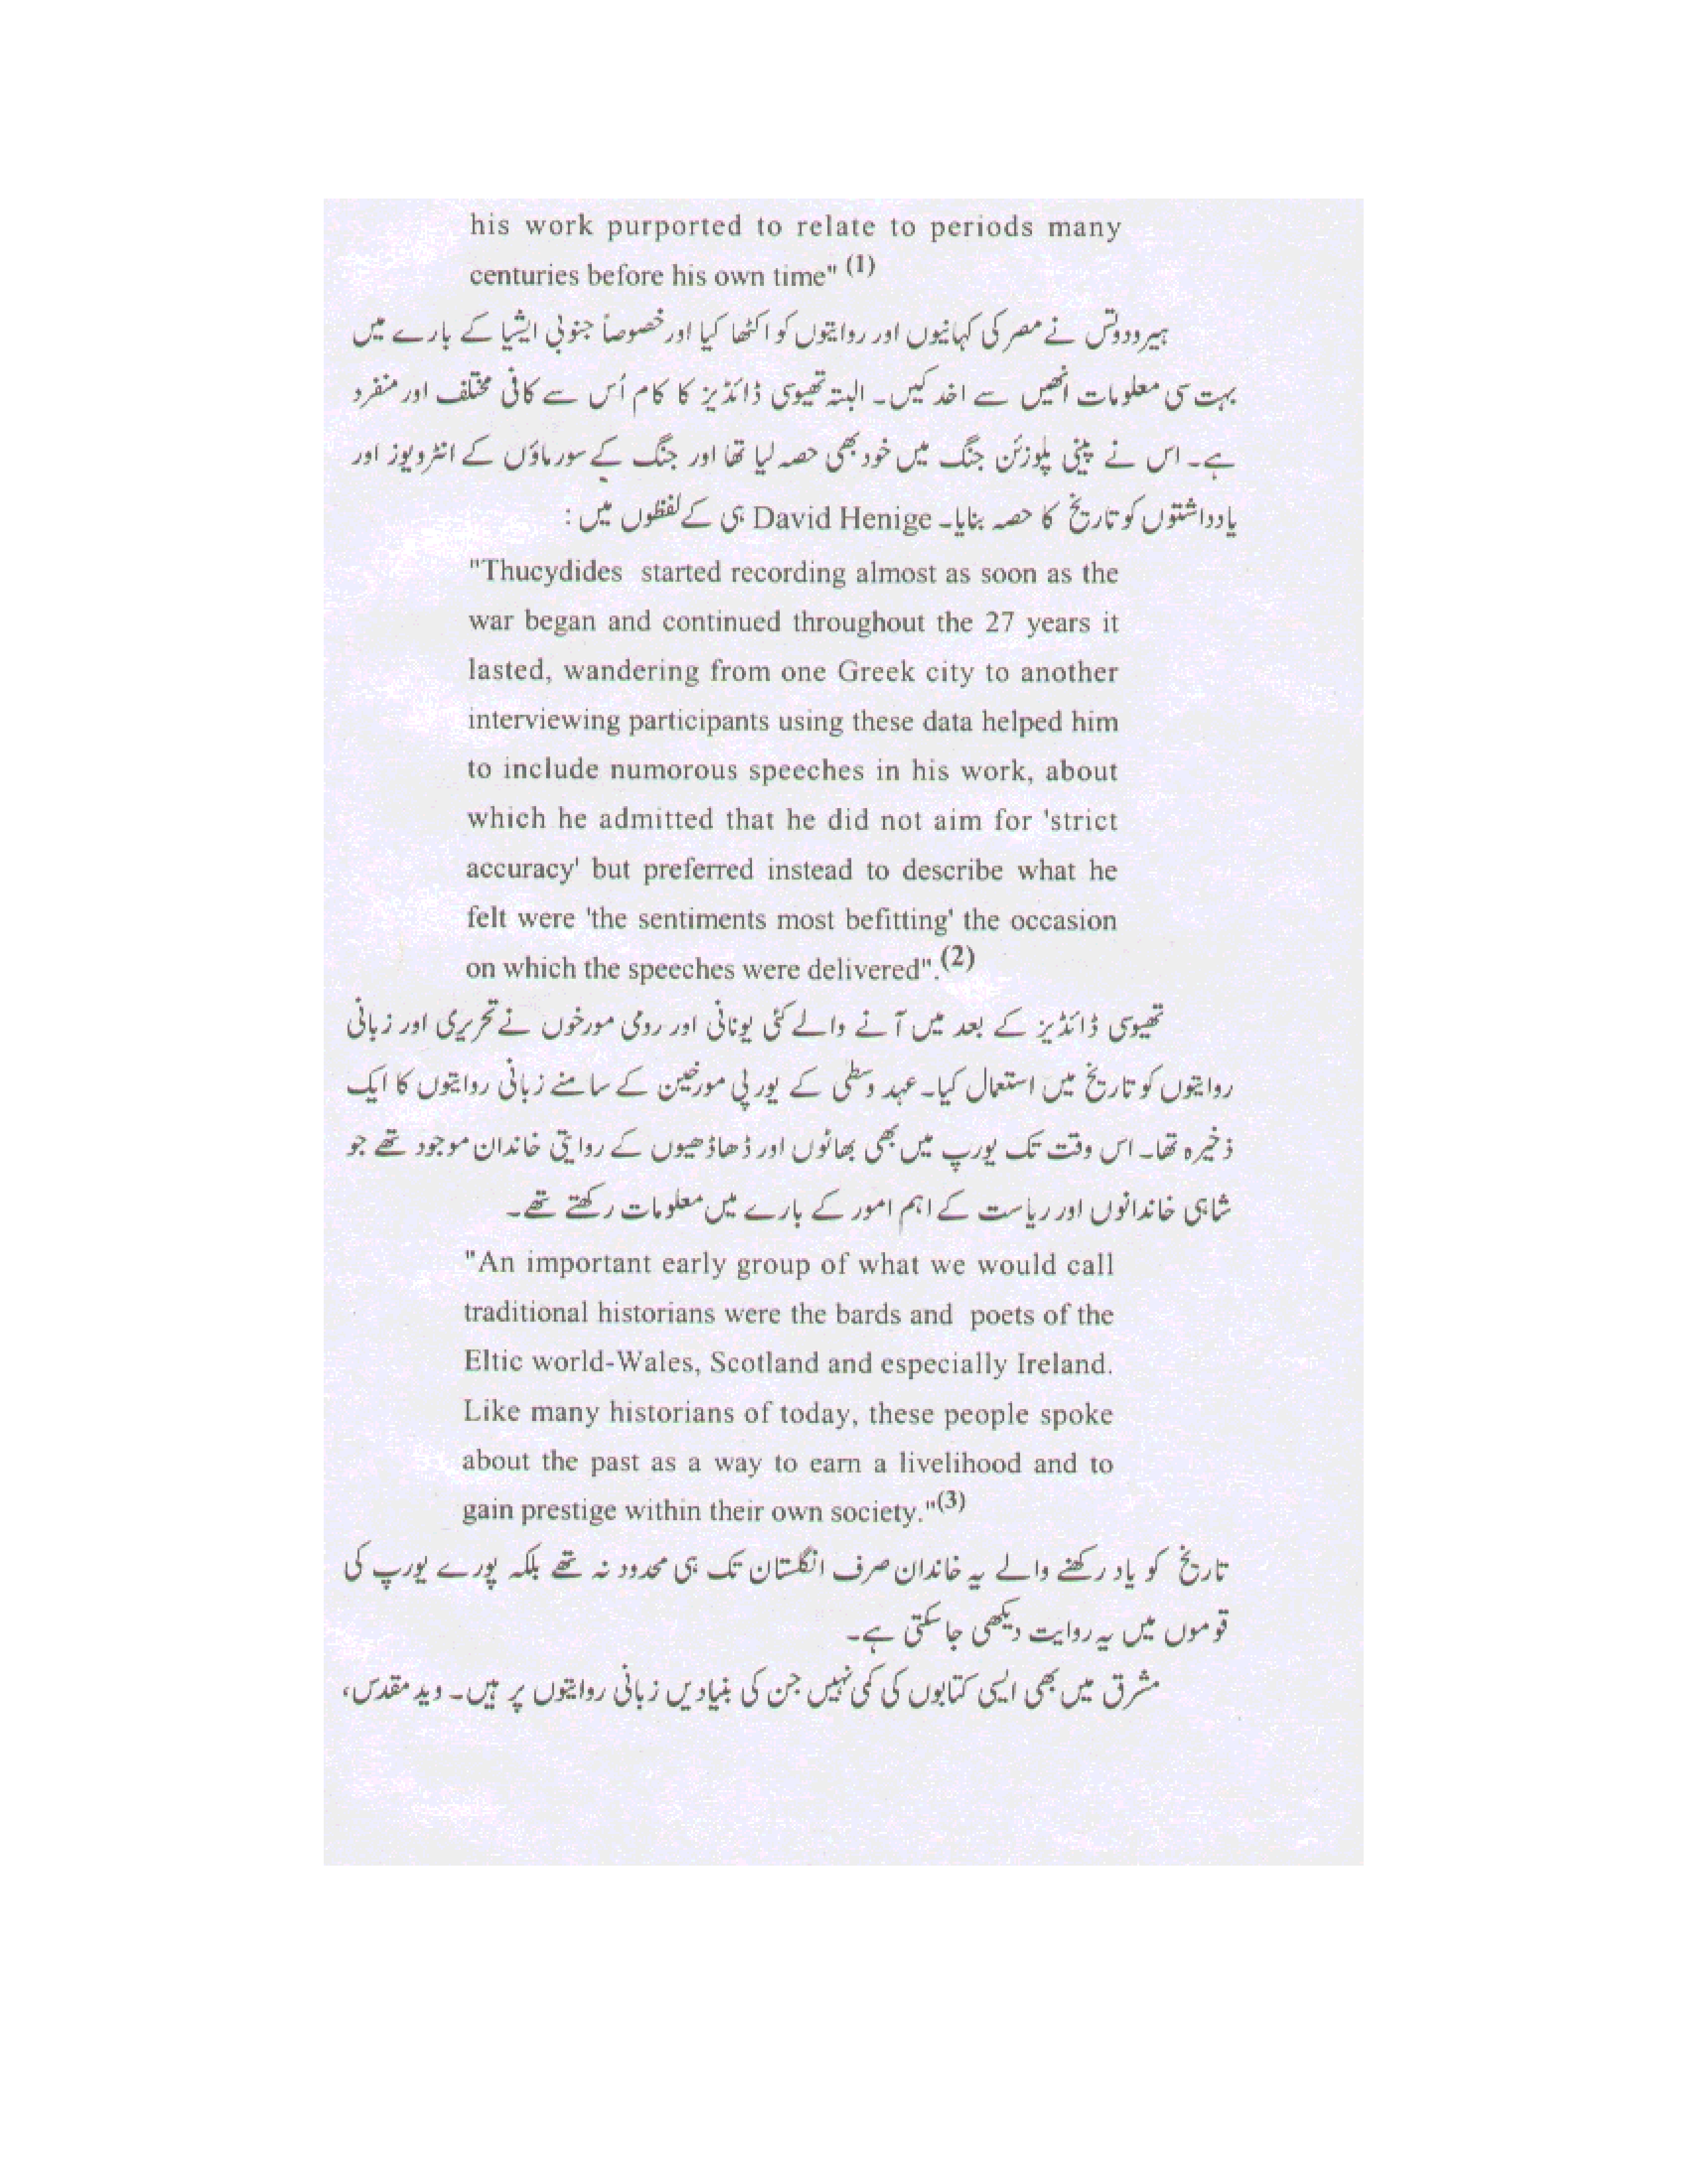 his work purported to relate to periods many
centuries before his own time" (1)
ہیرودوٹس نے مصر کی کہانیوں اور روایتوں کو اکٹھا کیا اور خصوصاً جنوبی ایشیا کے بارے میں
بہت سی معلومات انھیں سے اخذ کیں۔ البتہ تھیوسی ڈائڈیز کا کام اُس سے کافی مختلف اور منفرد
ہے۔ اس نے پینی پلوزئن جنگ میں خود بھی حصہ لیا تھا اور جنگ کے سورماؤں کے انٹرویوز اور
یادداشتوں کو تاریخ کا حصہ بنایا۔ David Henige ہی کے لفظوں میں :
"Thucydides started recording almost as soon as the
war began and continued throughout the 27 years it
lasted, wandering from one Greek city to another
interviewing participants using these data helped him
to include numorous speeches in his work, about
which he admitted that he did not aim for 'strict
accuracy' but preferred instead to describe what he
felt were 'the sentiments most befitting' the occasion
on which the speeches were delivered".(2)
تھیوسی ڈائڈیز کے بعد میں آنے والے کئی یونانی اور رومی مورخوں نے تحریری اور زبانی
روایتوں کو تاریخ میں استعمال کیا۔ عہد وسطی کے یورپی مورخین کے سامنے زبانی روایتوں کا ایک
ذخیرہ تھا۔ اس وقت تک یورپ میں بھی بھاٹوں اور ڈھاڈھیوں کے روایتی خاندان موجود تھے جو
شاہی خاندانوں اور ریاست کے اہم امور کے بارے میں معلومات رکھتے تھے۔
"An important early group of what we would call
traditional historians were the bards and poets of the
Eltic world-Wales, Scotland and especially Ireland.
Like many historians of today, these people spoke
about the past as a way to earn a livelihood and to
gain prestige within their own society."(3)
تاریخ کو یاد رکھنے والے یہ خاندان صرف انگلستان تک ہی محدود نہ تھے بلکہ پورے یورپ کی
قوموں میں یہ روایت دیکھی جا سکتی ہے۔
مشرق میں بھی ایسی کتابوں کی کمی نہیں جن کی بنیادیں زبانی روایتوں پر ہیں۔ وید مقدس،